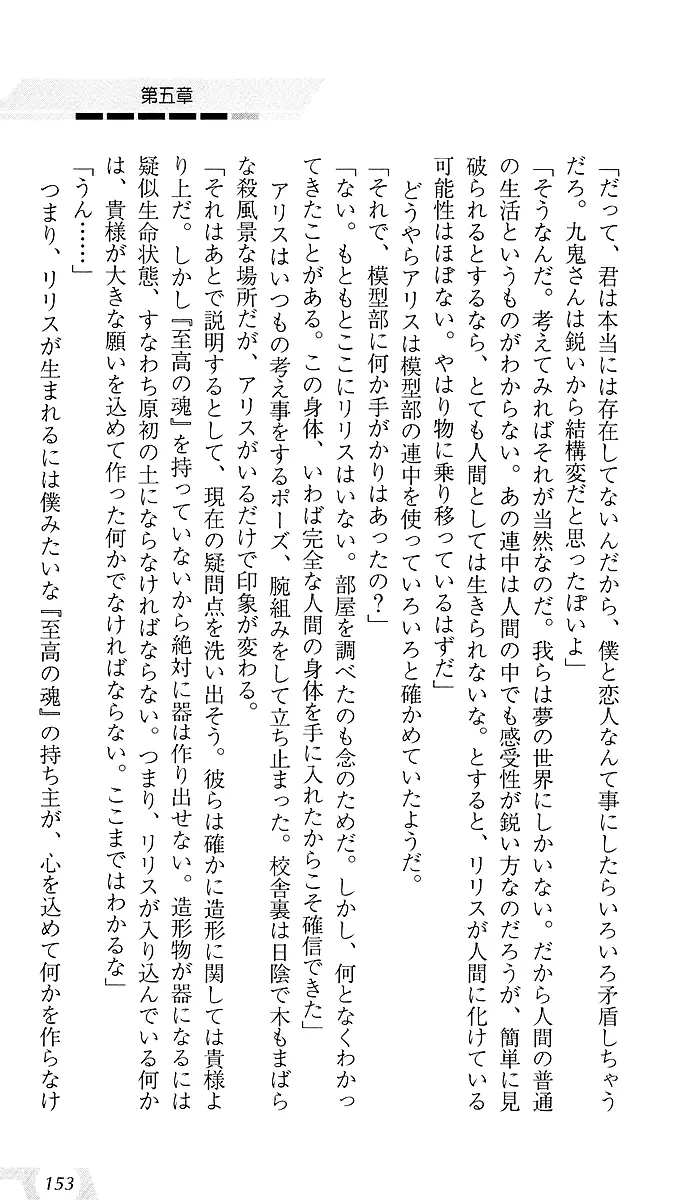 第五章
「だって、君は本当には存在してないんだから、僕と恋人なんて事にしたらいろいろ矛盾しちゃう
だろ。九鬼さんは鋭いから結構変だと思ったぽいよ」
「そうなんだ。考えてみればそれが当然なのだ。我らは夢の世界にしかいない。だから人間の普通
の生活というものがわからない。あの連中は人間の中でも感受性が鋭い方なのだろうが、簡単に見
破られるとするなら、とても人間としては生きられないな。とすると、リリスが人間に化けている
可能性はほぼない。やはり物に乗り移っているはずだ」
どうやらアリスは模型部の連中を使っていろいろと確かめていたようだ。
「それで、模型部に何か手がかりはあったの？」
「ない。もともとここにリリスはいない。部屋を調べたのも念のためだ。しかし、何となくわかっ
てきたことがある。この身体、いわば完全な人間の身体を手に入れたからこそ確信できた」
アリスはいつもの考え事をするポーズ、腕組みをして立ち止まった。校舎裏は日陰で木もまばら
な殺風景な場所だが、アリスがいるだけで印象が変わる。
「それはあとで説明するとして、現在の疑問点を洗い出そう。彼らは確かに造形に関しては貴様よ
り上だ。しかし『至高の魂』を持っていないから絶対に器は作り出せない。造形物が器になるには
疑似生命状態、すなわち原初の土にならなければならない。つまり、リリスが入り込んでいる何か
は、貴様が大きな願いを込めて作った何かでなければならない。ここまではわかるな」
「うん……」
つまり、リリスが生まれるには僕みたいな『至高の魂』の持ち主が、心を込めて何かを作らなけ
153